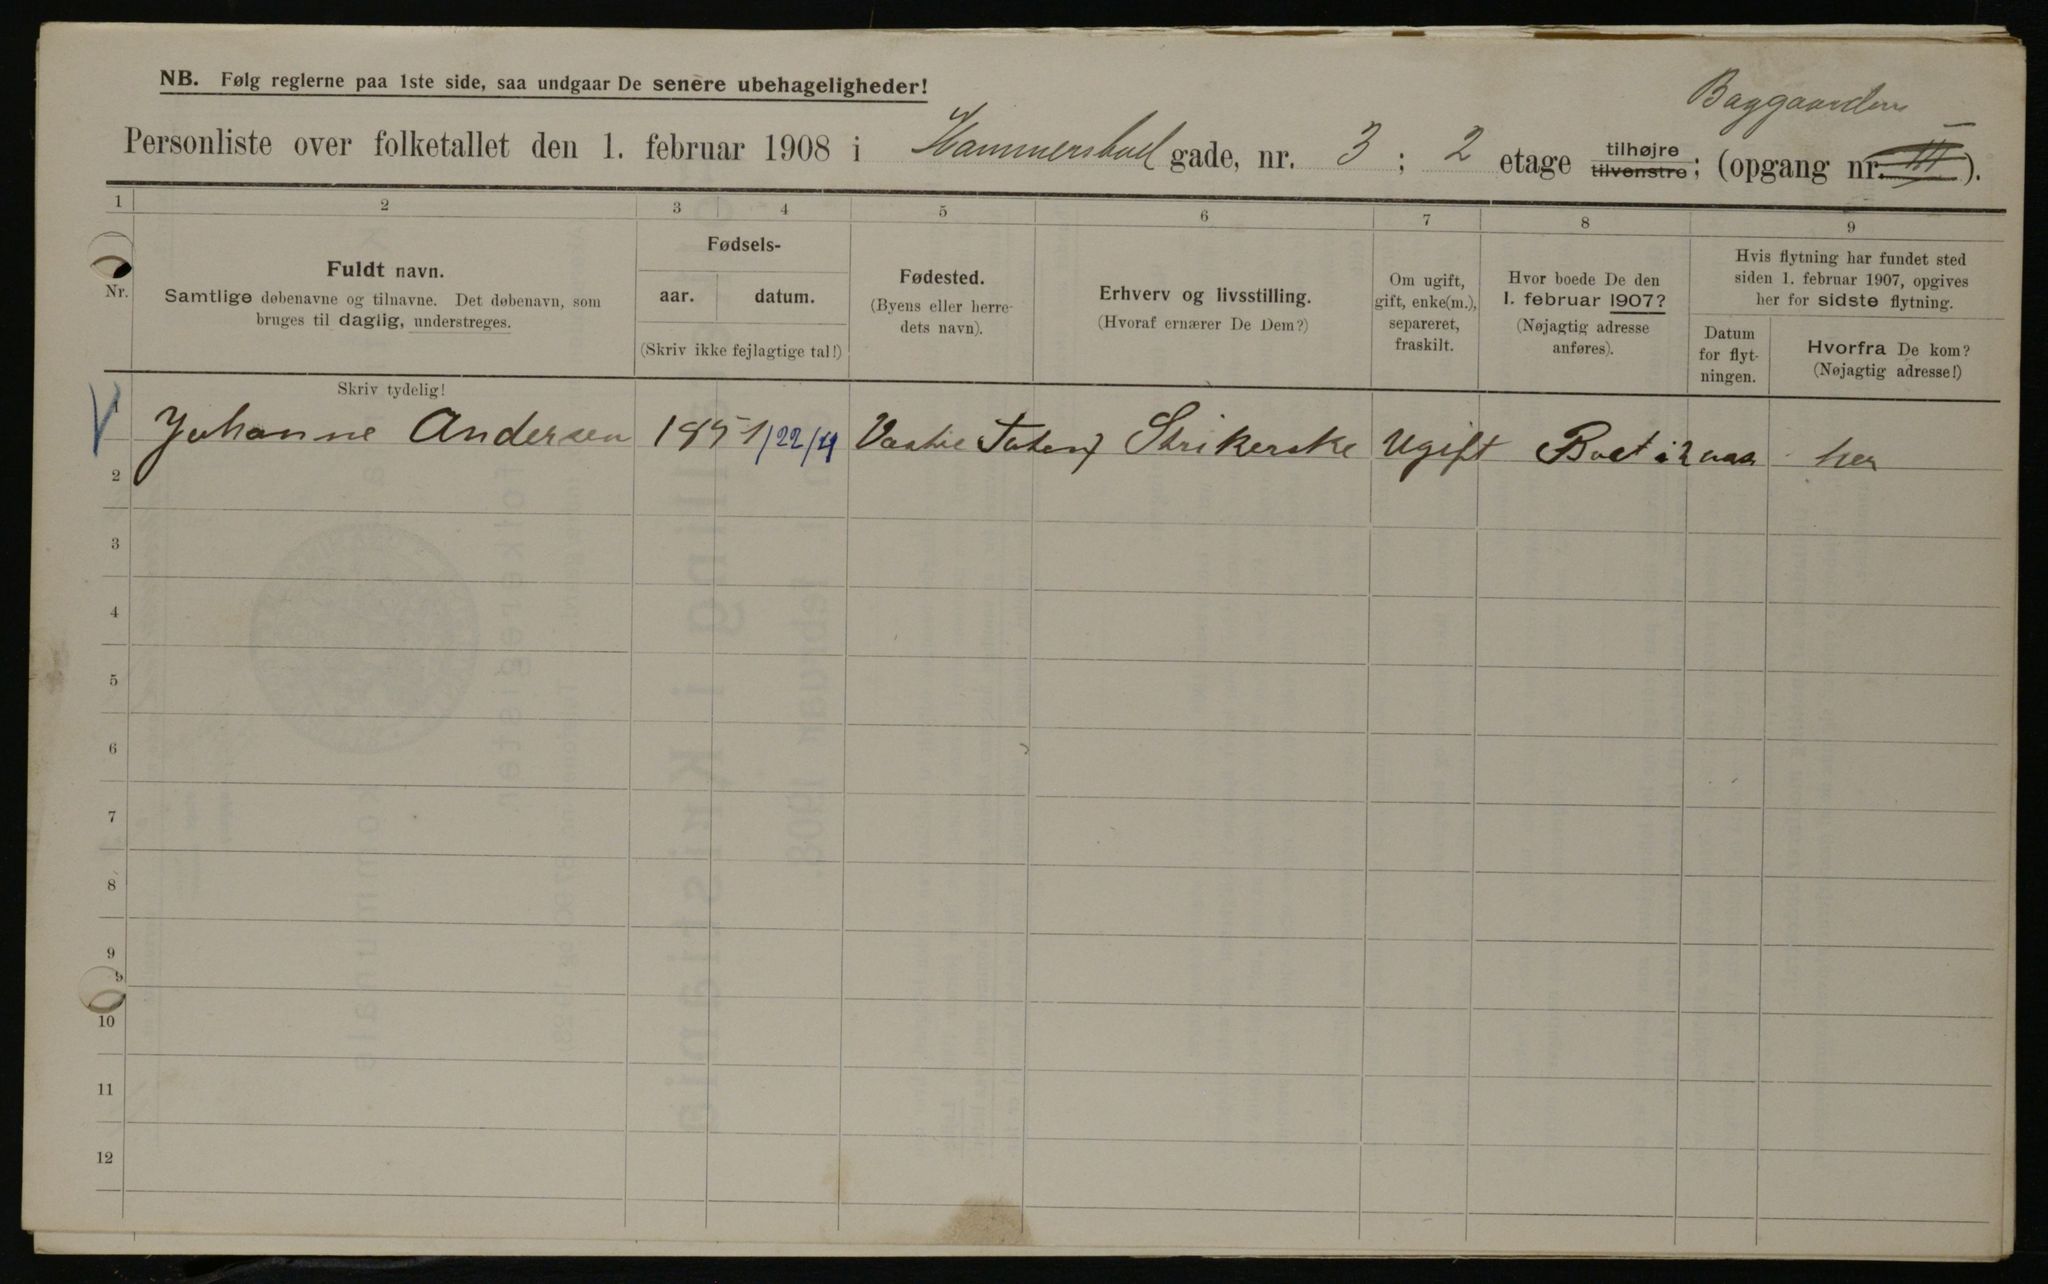 NB. Følg reglerne paa 1ste side, saa undgaar De senere ubehageligheder!
Baggaarden
Personliste over folketallet den 1. februar 1908 i Hammersbull gade, nr. 3 ; 2 etage tilhøjre tilvenstre ; (opgang nr. III ).
1 2 3 4 5 6 7 8 9
Nr.
Fuldt navn.
Samtlige døbenavne og tilnavne. Det døbenavn, som
bruges til daglig, understreges.
Skriv tydelig!
Fødsels-
aar. datum.
(Skriv ikke fejlagtige tal!)
Fødested.
(Byens eller herre-
dets navn).
Erhverv og livsstilling.
(Hvoraf ernærer De Dem?)
Om ugift,
gift, enke(m.),
separeret,
fraskilt.
Hvor boede De den
1. februar 1907?
(Nøjagtig adresse
anføres).
Hvis flytning har fundet sted
siden 1. februar 1907, opgives
her for sidste flytning.
Datum
for flyt-
ningen.
Hvorfra De kom?
(Nøjagtig adresse!)
1 Johanne Andersen 1851 /22/4 Vastre Toten Strikerske Ugift Boet i 2 aar her
2
3
4
5
6
7
8
9
10
11
12